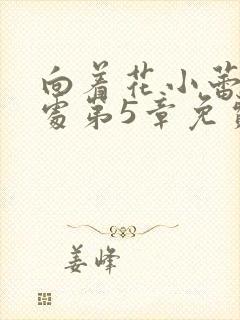 向着花小蕾
处第5章免费
姜峰